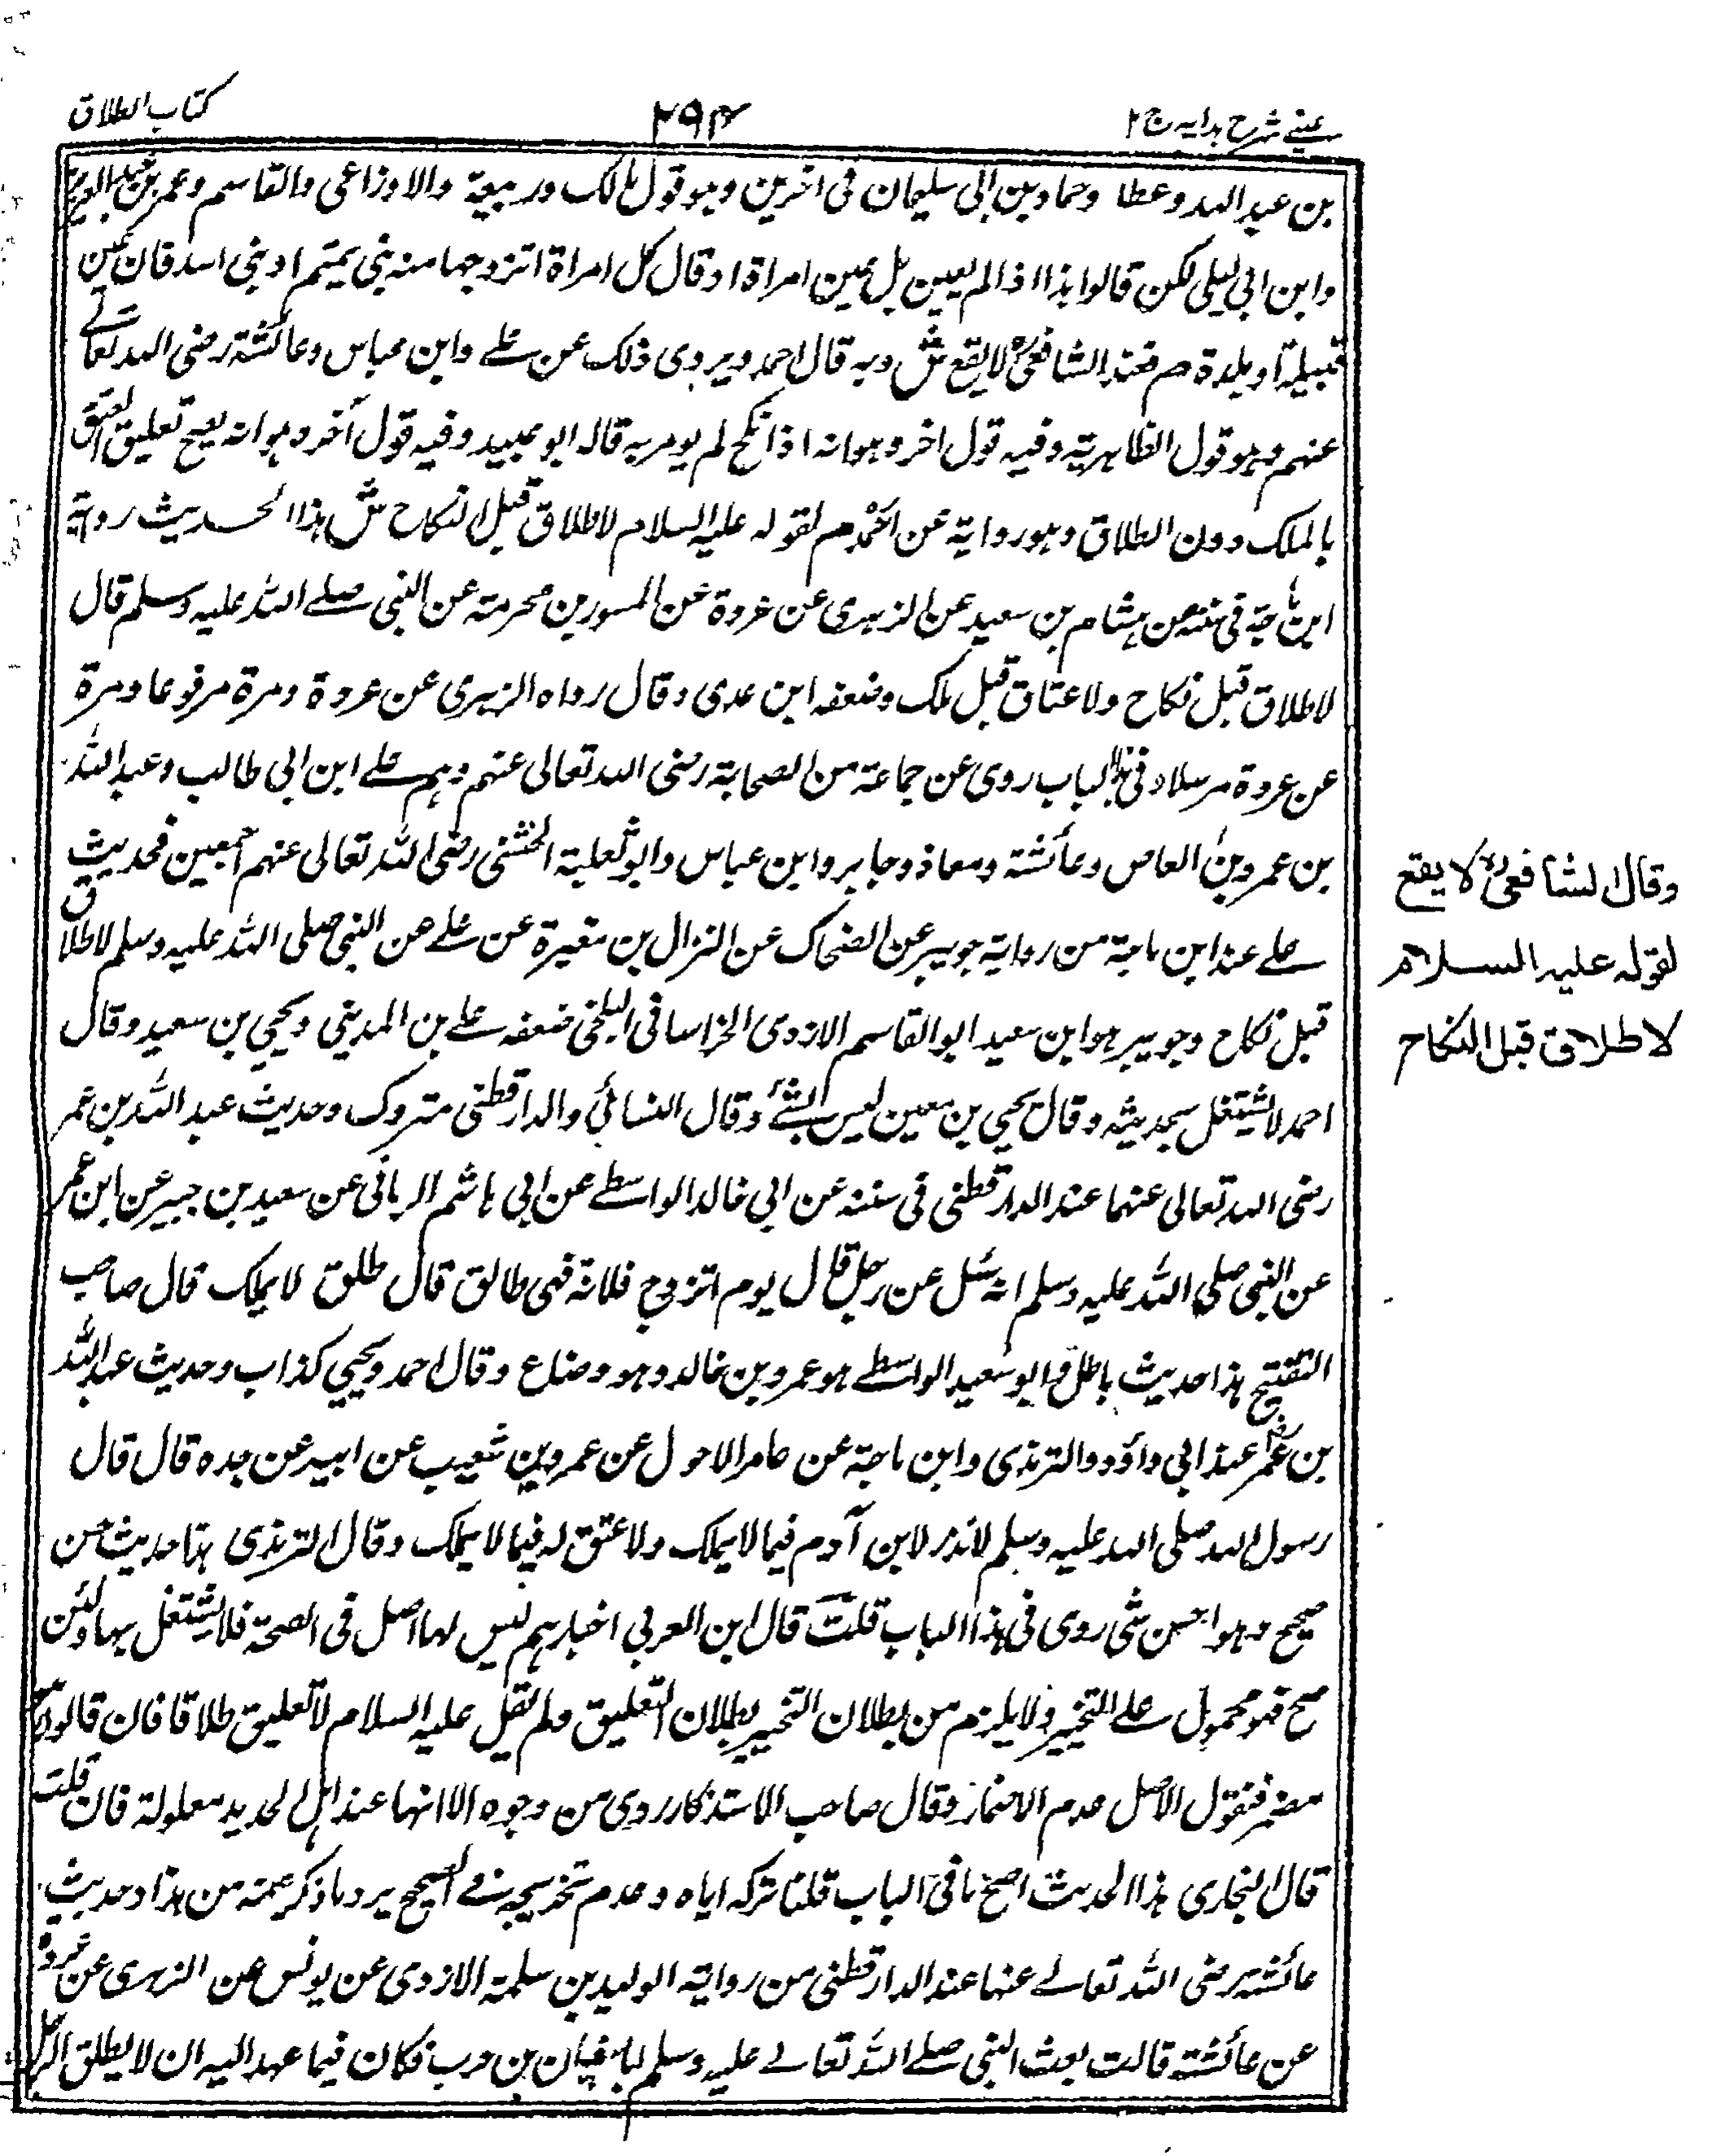 عینے شرح ہدایہ ج ۲
۲۹۴
کتاب الطلاق
بن عبد الله وعطا وحماد بن ابی سلیمان فی اخرین وہو قول مالک وربیعة والاوزاعی والقاسم وعمر بن عبد العزیز
وابن ابی لیلی لکن قالوا ہذا اذا لم یعین بل عین امراة او قال کل امراة اتزوجہا من بنی تمیم او بنی اسد فان عین
قبیلة او بلدة م فعند الشافعی رہ لا یقع ش وبہ قال احمد ویروی ذلک عن علے وابن عباس وعائشة رضی الله تعالے
عنہم وہو قول الظاہریة وفیہ قول اخر وہو انہ اذا نکح لم یومر بہ قالہ ابو عبید وفیہ قول آخر وہو انہ یصح تعلیق العتق
بالملک دون الطلاق وہو روایة عن احمد م لقولہ علیہ السلام لا طلاق قبل النکاح ش ہذا الحدیث رواہ
ابن ماجة فی سننہ عن ہشام بن سعید عن الزہری عن عروة عن المسور بن مخرمة عن النبی صلے الله علیہ وسلم قال
لا طلاق قبل نکاح ولا عتاق قبل ملک وضعفہ ابن عدی وقال رواہ الزہری عن عروة ومرة مرفوعا ومرة
عن عروة مرسلا وفی ہذا الباب روی عن جماعة من الصحابة رضی الله تعالی عنہم وہم علے ابن ابی طالب وعبد الله
بن عمرو بن العاص وعائشة ومعاذ وجابر وابن عباس وابو ثعلبة الخشنی رضی الله تعالی عنہم اجمعین فحدیث
علے عند ابن ماجة من روایة جویبر عن الضحاک عن النزال بن مغیرة عن علے عن النبی صلی الله علیہ وسلم لا طلاق
قبل نکاح وجویبر ہو ابن سعید ابو القاسم الازدی الخراسانی البلخی ضعفہ علے بن المدینی ویحیی بن سعید وقال
احمد لا یشتغل بحدیثہ وقال یحیی بن معین لیس بشئ وقال النسائی والدارقطنی متروک وحدیث عبد الله بن عمر
رضی الله تعالی عنہما عند الدارقطنی فی سننہ عن ابی خالد الواسطے عن ابی ہاشم الرمانی عن سعید بن جبیر عن ابن عمر
عن النبی صلی الله علیہ وسلم انہ سئل عن رجل قال یوم اتزوج فلانة فہی طالق قال طلق لا یملک قال صاحب
التنقیح ہذا حدیث باطل وابو سعید الواسطے ہو عمرو بن خالد وہو وضاع وقال احمد ویحیی کذاب وحدیث عبد الله
بن عمر عند ابی داؤد والترمذی وابن ماجة عن عامر الاحول عن عمرو بن شعیب عن ابیہ عن جدہ قال قال
رسول الله صلی الله علیہ وسلم لا نذر لابن آدم فیما لا یملک ولا عتق لہ فیما لا یملک وقال الترمذی ہذا حدیث حسن
صحیح وہو احسن شی روی فی ہذا الباب قلت قال ابن العربی اخبارہم لیس لہا اصل فی الصحة فلا یشتغل بہا ولئن
صح فہو محمول علے التخییر ولا یلزم من بطلان التخییر بطلان التعلیق ولم یقل علیہ السلام لا تعلیق طلاقا فان قالوا
مضمر فنقول الاصل عدم الاضمار وقال صاحب الاستذکار روی من وجوہ الا انہا عند اہل الحدیث معلولة فان قلت
قال البخاری ہذا الحدیث اصح ما فی الباب قلنا ترکہ ایاہ وعدم تخریجہ فے الصحیح یرد ما ذکر عنہ من ہذا وحدیث
عائشة رضی الله تعالے عنہا عند الدارقطنی من روایة الولید بن سلمة الازدی عن یونس عن الزہری عن عروة
عن عائشة قالت بعث النبی صلے الله تعالے علیہ وسلم ابا سفیان بن حرب فکان فیما عہد الیہ ان لا یطلق الرجل
وقال الشافعی رہ لا یقع
لقولہ علیہ السلام
لا طلاق قبل النکاح